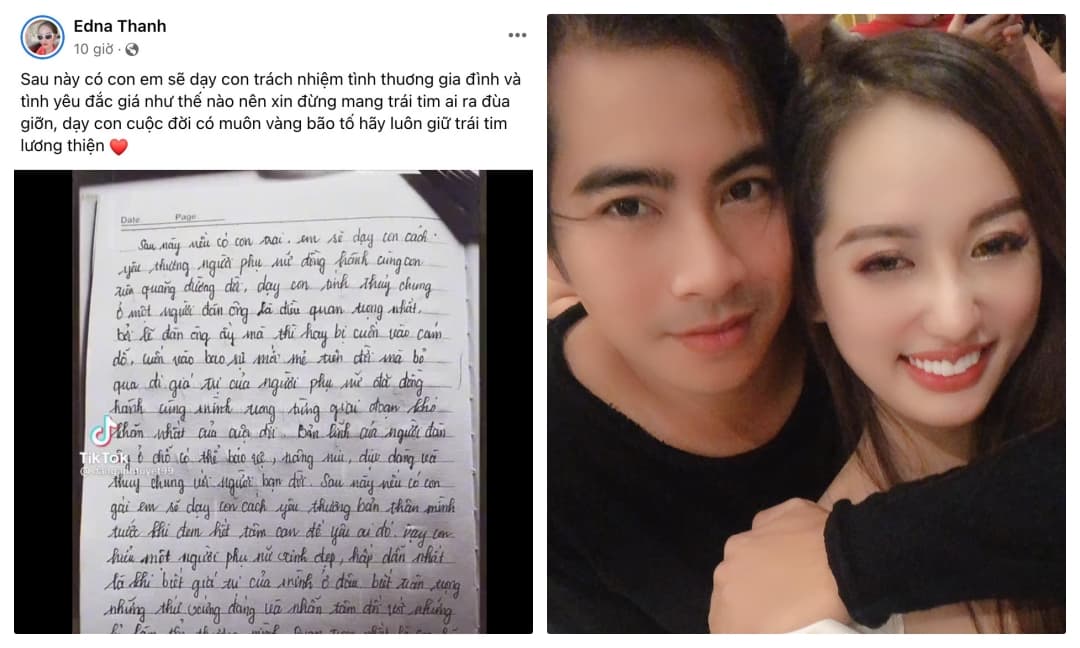 Edna Thanh
10 giờ
Sau này có con em sẽ dạy con trách nhiệm tình thuơng gia đình và
tình yêu đắc giá như thế nào nên xin đừng mang trái tim ai ra đùa
giỡn, dạy con cuộc đời có muôn vàng bão tố hãy luôn giữ trái tim
lương thiện
Date Page
Sau này nếu có con trai, em sẽ dạy con cách
yêu thương người phụ nữ đồng hành cùng con
trên quãng đường đời, dạy con tính thủy chung
ở một người đàn ông là điều quan trọng nhất,
bởi lẽ đàn ông ấy mà thì hay bị cuốn vào cám
dỗ, cuốn vào bao sự mới mẻ trên đời mà bỏ
qua đi giá trị của người phụ nữ đã đồng
hành cùng mình trong từng giai đoạn khó
khăn nhất của cuộc đời. Bản lĩnh của người đàn
ở chỗ có thể bảo vệ, nâng niu, dịu dàng và
thủy chung với người bạn đời. Sau này nếu có con
gái em sẽ dạy con cách yêu thương bản thân mình
trước khi đem hết tâm can để yêu ai đó, dạy con
hiểu một người phụ nữ xinh đẹp, hấp dẫn nhất
là khi biết giá trị của mình ở đâu, biết trân trọng
những thứ xứng đáng và nhẫn tâm đối với những
TikTok